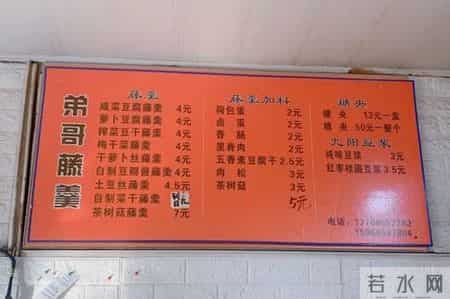 弟哥藤羹
藤羹
咸菜豆腐藤羹 4元
萝卜豆腐藤羹 4元
榨菜豆干藤羹 4元
梅干菜藤羹 4元
干萝卜丝藤羹 4元
自制豆瓣酱藤羹 4元
土豆丝藤羹 4.5元
自制菜干藤羹
茶树菇藤羹 7元
藤羹加料
荷包蛋 2元
卤蛋 2元
香肠 2元
里脊肉 2元
五香素豆腐干 2.5元
肉松 3元
茶树菇 3元
5元
糖央
糖央 12元一盒
糖央 50元一整个
九阳豆浆
纯味豆浆 3元
红枣核桃豆浆 3.5元
电话:
若水网